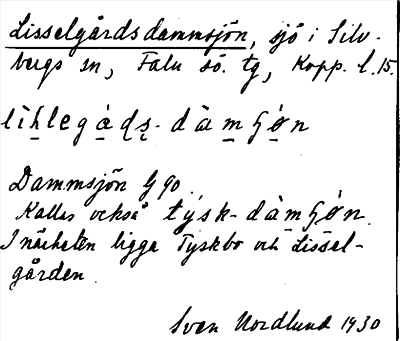 Lisselgårdsdammsjön, sjö i Silv-
bergs sn, Falu sö. tg, Kopp. l. 15.
Dammsjön G 90.
Kallas också
I närheten ligga Tyskbo och Lissel-
gården.
Sven Nordlund 1930